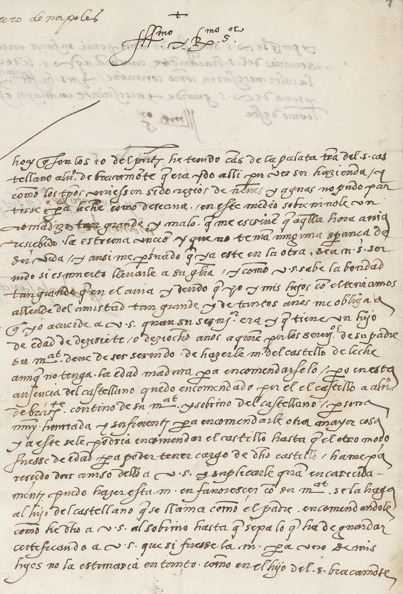 de napoles
+
Ill.mo y R.mo S.or
hoy q son los 10 del he tenido de la palata del s. cas
tellano de bracamõte que era ydo alli por ver su hazienda, y
como los tpos an sido rezios de nieves y aguas no pudo par
tirse pa leche como deseava, en este medio sobrevinole un
romadizo tan grande y malo, que me escriven q aqlla hora avia
rescebido la estrema unctiõ y que no tenia ninguna sperança de
su vida / y ansi me q ya este en la otra, sea nro sor
servido si es muerto llevarle a su glia / y como v.s. sabe la bondad
tan grande que en el avia y deudo que yo y mis hijos cõ el teniamos
allende del amistad tan grande y de tantos años me obliga a
q yo acuerde a v.s. quan su servjor era y que tiene un hijo
de edad de deziseite / o deziocho años a quien por los servijos de su padre
su mat. deve de ser servido de hazerle m. del castillo de leche
aunq no tenga la edad madura pa encomendarselo / po en esta
ausencia del castellano quedo encomendado por el el castillo a
de contino de su mat. y sobrino del castellano / persona
muy honrrada y sufiçiente pa encomendarle otra mayor cosa
y a este se le podria encomendar el castillo hasta que el otro moço
fuesse de edad pa poder tener cargo de dho castillo / hame pa
rescido dar aviso dello a v.s. y suplicarle quan encarecida
mente puedo haga esta m. en favorescer cõ su mat. se la haga
al hijo del castellano que se llama como el padre, encomendandole
como he dho a v.s. al sobrino hasta que sepa lo q ha de guardar
certeficando a v.s. que si fuesse la m. pa uno de mis
hijos no la estimaria en tanto, como en el hijo del s. bracamõte